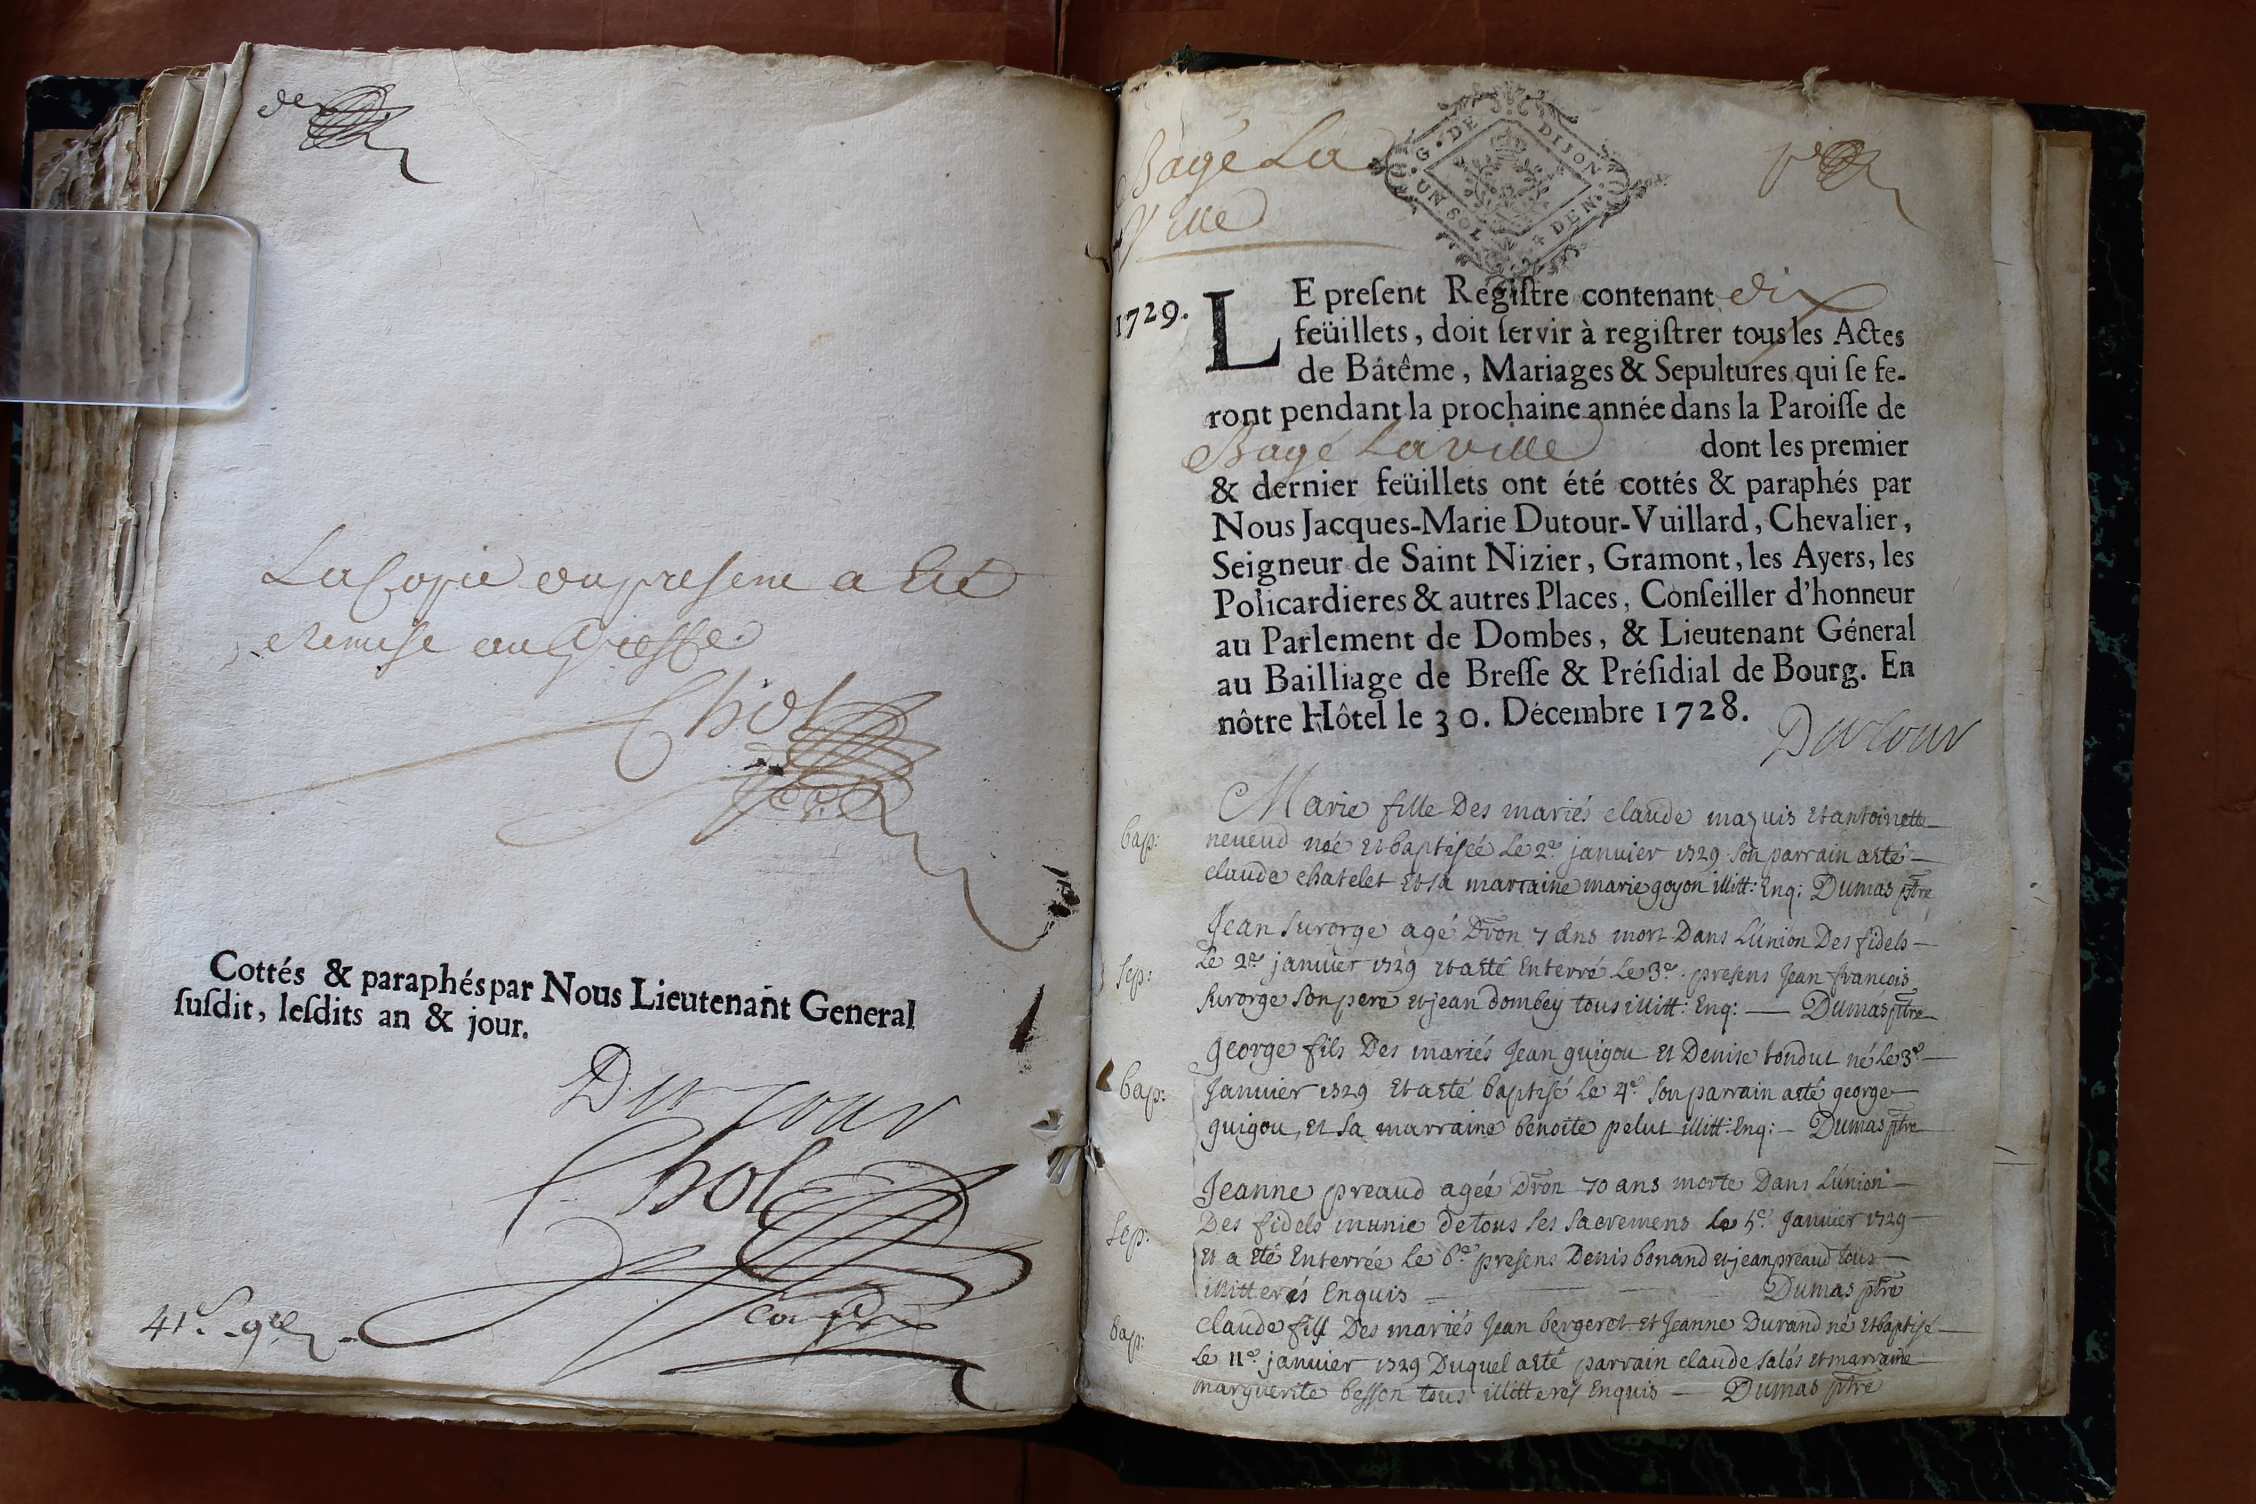 der
La Copie du present a Eté
Remise au Greffe
Chol
Cottés & paraphés par Nous Lieutenant General
suſdit, leſdits an & jour.
Dutour
Chol
Bagé La
Ville
G. DE DIJON.
UN SOL 4 DEN.
1729.
LE preſent Regiſtre contenant dix
feüillets, doit ſervir à regiſtrer tous les Actes
de Bâtême, Mariages & Sepultures qui ſe fe-
ront pendant la prochaine année dans la Paroiſſe de
Bagé La ville dont les premier
& dernier feüillets ont été cottés & paraphés par
Nous Jacques-Marie Dutour-Vuillard, Chevalier,
Seigneur de Saint Nizier, Gramont, les Ayers, les
Policardieres & autres Places, Conſeiller d'honneur
au Parlement de Dombes, & Lieutenant Géneral
au Bailliage de Breſſe & Préſidial de Bourg. En
nôtre Hôtel le 30. Décembre 1728.
Dutour
Marie fille Des mariés claude mazuis et antoinette
bap: neveud née et baptisée Le 2e janvier 1729 son parrain a eté
claude chatelet et sa marraine marie goyon illitt: Enq: Dumas ptre
Jean surorge agé Dron 7 ans mort Dans L'union Des fidels
sep: Le 2e janvier 1729 et a eté Enterré Le 3e presens Jean francois
surorge son pere et jean dombey tous illitt: Enq: Dumas ptre
george fils Des mariés Jean guigou et Denise tondut né Le 3e
bap: Janvier 1729 et a eté baptisé Le 4e son parrain a eté george
guigou, et sa marraine benoite pelut illitt: Enq: Dumas ptre
Jeanne preaud agée Dron 70 ans morte Dans L'union
sep: Des fidels munie de tous ses sacremens Le 5e Janvier 1729
et a eté Enterrée Le 6e presens Denis bonand et jean preaud tous
illitterés Enquis Dumas ptre
bap: claude fils Des mariés Jean bergeret et Jeanne Durand né et baptisé
Le 11e janvier 1729 Duquel a eté parrain claude salés et marraine
marguerite besson tous illitterés Enquis Dumas ptre